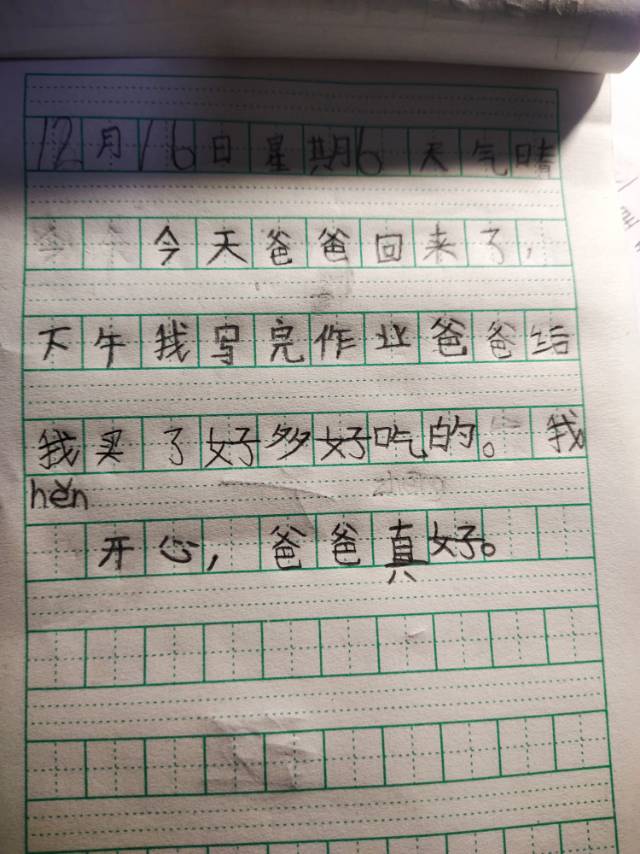 12月16日星期6天气晴
今天爸爸回来了，
下午我写完作业爸爸给
我买了好多好吃的。我
hěn
开心，爸爸真好。